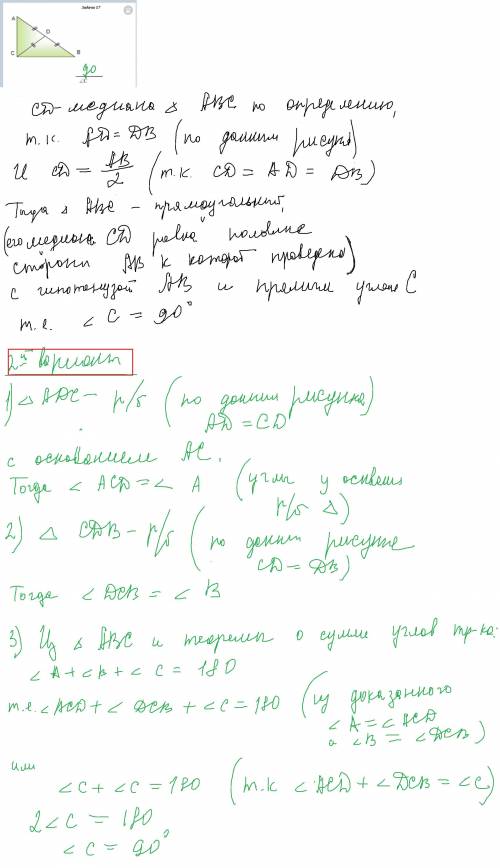 Задача 17
A
D
C
B
90
∠C
CD-медиана △ ABC по определению,
т.к. AD = DB (по данным рисунка)
И CD = AB/2 (т.к. CD = AD = DB)
Тогда △ ABC - прямоугольный,
(его медиана CD равна половине
стороны AB к которой проведена)
с гипотенузой AB и прямым углом C
т.е. ∠ C = 90°
2й вариант
1) △ ADC - р/б (по данным рисунка)
AD = CD
с основанием AC.
Тогда ∠ ACD = ∠ A (углы у основан
р/б △)
2) △ CDB - р/б (по данным рисунке
CD = DB)
Тогда ∠ DCB = ∠ B
3) Из △ ABC и теоремы о сумме углов тр-ка:
∠ A + ∠ B + ∠ C = 180
т.е. ∠ ACD + ∠ DCB + ∠ C = 180 (из доказанного
∠ A = ∠ ACD
а ∠ B = ∠ DCB)
или
∠ C + ∠ C = 180 (т.к ∠ ACD + ∠ DCB = ∠ C)
2∠ C = 180
∠ C = 90°